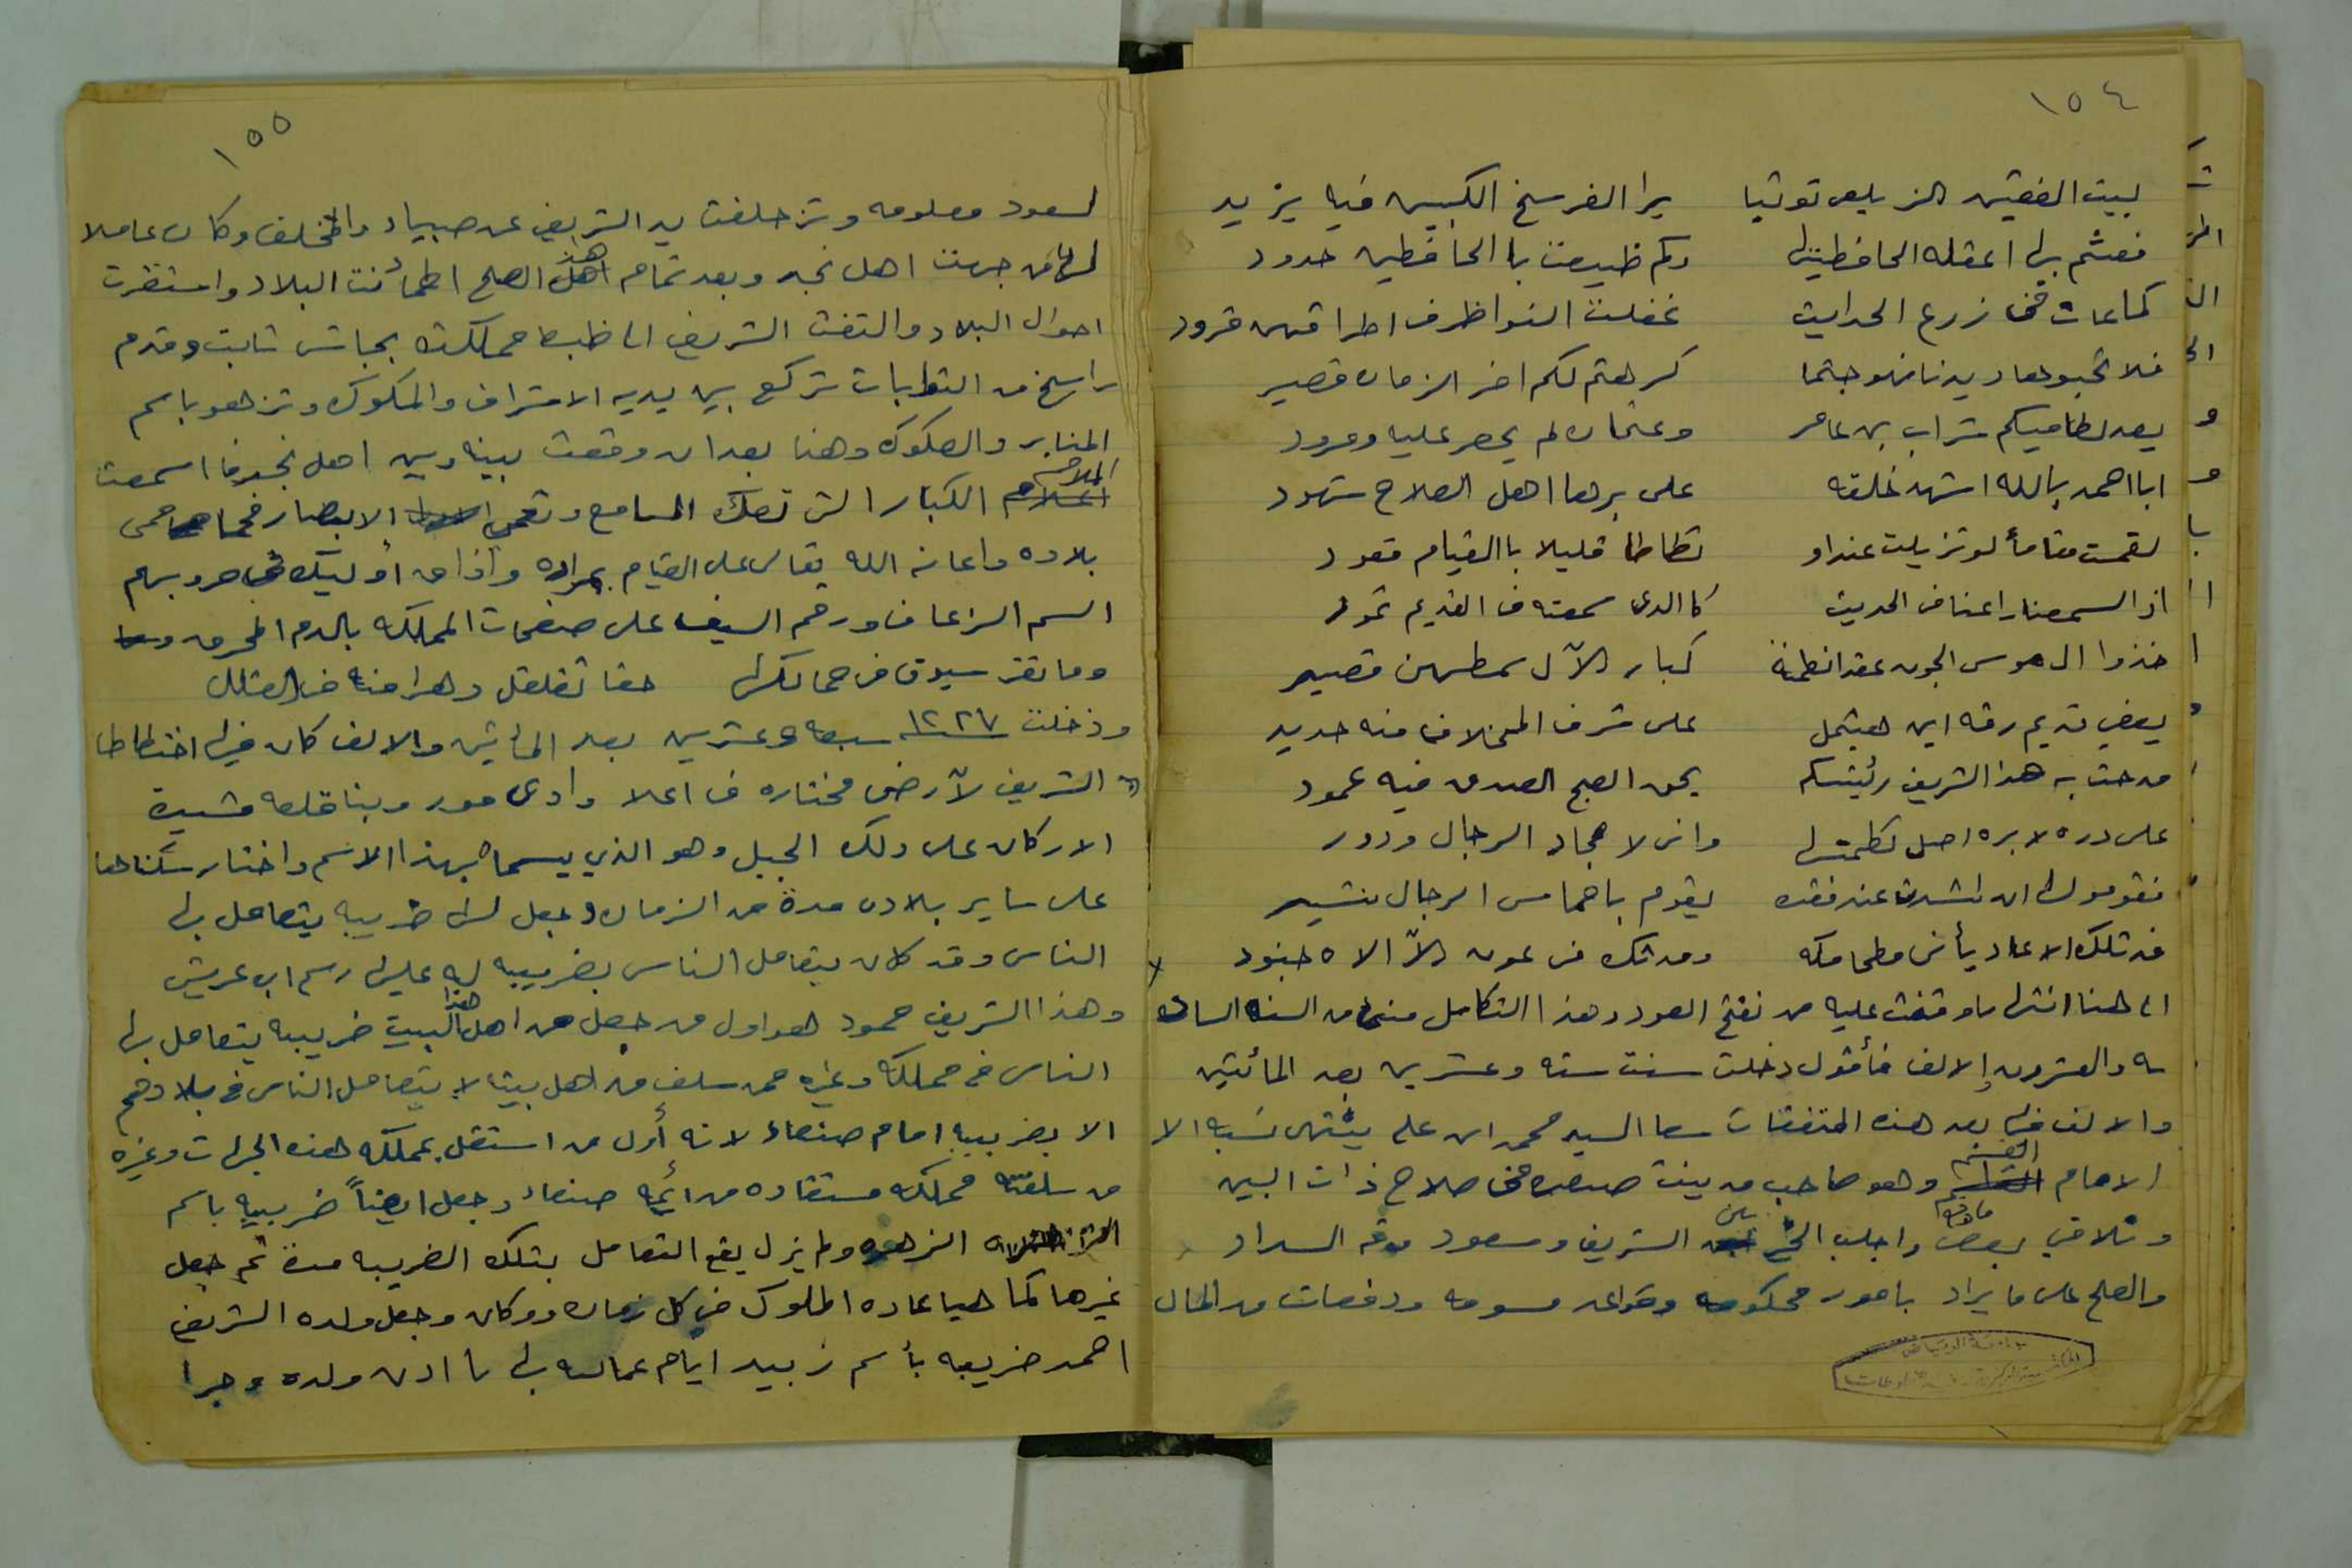 ١٥٤
لبيت الفقيه الزيلعي توتيا يرا الفرسخ الكبير فيه يزيد
فعثم بها اعقله الحافظيها وكم ظيعت با الحافظين حدود
كماعات في زرع الحدايث غفلت النواظر ف اطرافهن قرود
فلا تحبوها كرهتم لكم اخر الزمان قصير
بعد نظاميكم شراب بن عامر وعثمان لم يحصر عليا وعرود
ابا احمد بالله اشهد خلقه على برها اهل الصلاح شهود
لقمت مقاماً لو تزيلت عنداو تطاطا قليلا با القيام قعود
اذ السمعنا راعنا في الحديث كا الدى سمعته ف القديم ثمود
خذوا ال هوس الجون عقد انظمنة كبار الآل سمطهن قصير
يضي قديم رقه اين هيثمل على شرف المخلاف منه حديد
مدحت به هذا الشريف رئيسكم يحق الصبح الصدق فيه عمود
على دره لا بره اصل نظمتها وانى لا هجاد الرجال ودود
فقوموا لها ان انشدت عند فقده يقوم باخماس الرجال
فد تلك الاعاد يأتى مطحامكه ومدتك في عون الآ الاه جنود
الى هنا انتها ما وقفت عليه من نفح العود وهذا التكامل منها من السنه الساد
سه والعشرون والالف فأقول دخلت سنت سته وعشرين بعد المائتين
والالف فيها بعد هذه المتفقات سعا السيد محمد ابن علي ينتهي نسبه الا
الامام القسم وهو صاحب مدينت صعده في صلاح ذات البين
وتلافي بعض ما وقع واجلب الخ بين الشريف ومسعود موقع السداد
والصلح على ما يراد بامور محكومه وقواعد مسومه ودفعات من المال
جامعة الرياض
١٥٥
لسعود معلومه وتزحلفت يد الشريف عن صبيا والمخلاف وكان عاملا
لها من جهت اهل نجد وبعد تمام هذا الصلح اطمأنت البلاد واستقرت
احوال البلاد والتفت الشريف الى ظبط مملكته بجاش ثابت وقدم
راسخ من الثوابات تركع بين يديه الاشراف والملوك وتزهو باسمه
المنابر والصكوك وهنا بعد ان وقعت بينه وبين اهل نجد ما اسمعت
الملاحم الكبار التي تصك المسامع وتعمي الابصار فحما حمى
بلاده واعانه الله تعالى على القيام بمراده واذاق اوليك في حروبهم
السم الزعاف ورقم السيف على صفحات المملكه بالدم المحرق
وما تقر سيوف في ممالكها حتا تقلقل دهرا منه في القلل
ودخلت ١٢٢٧ سبعه وعشرين بعد المائتين والالف كان فيها اختطاطا
الشريف لآرضى مختاره في اعلا وادى مور وبنا قلعه مشيدة
الاركان على ذلك الجبل وهو الذي يسما بهذا الاسم واختار سكناها
على ساير بلاده مدة من الزمان وجعل لها ظريبه يتعامل بها
الناس وقد كان يتعامل الناس بضريبه له عليها رسم ابى عريش
وهذا الشريف حمود هو اول من جعل من اهل هذا البيت ضريبه يتعامل بها
الناس في مملكه وغيره ممن سلف من اهل بيته لا يتعامل الناس في بلادهم
الا بضريبه امام صنعاء لانه أول من استقل بمملكه هذه الجهات وغيره
من سلفته مملكته مستفاده من أئمه صنعاء وجعل ايضاً ضريبه باسم
الزهره ولم يزل يقع التعامل بتلك الضريبه مدة ثم جعل
غيرها كما هيا عاده الملوك في كل زمان ومكان وجعل ولده الشريف
احمد ضريبه بأسم زبيد ايام عماله بها با اذن ولده وجرا